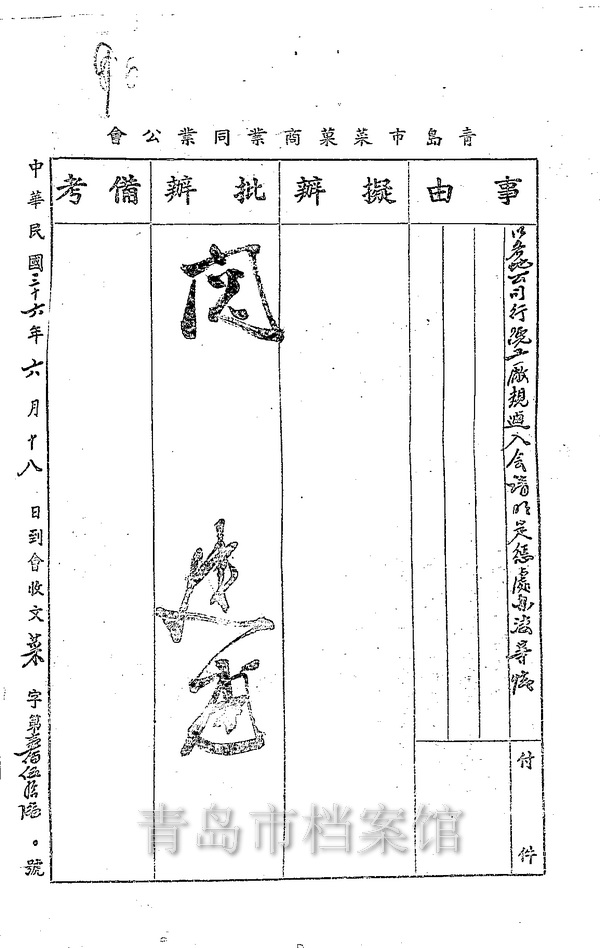 青島市菜菓商業同業公會
事由
擬辦
批辦
備考
以各公司行號工廠規避入会請明定懲處办法等情
付件
閱
中華民國三十六年六月十八日到會收文菜字第壹佰伍拾 號
青岛市档案馆